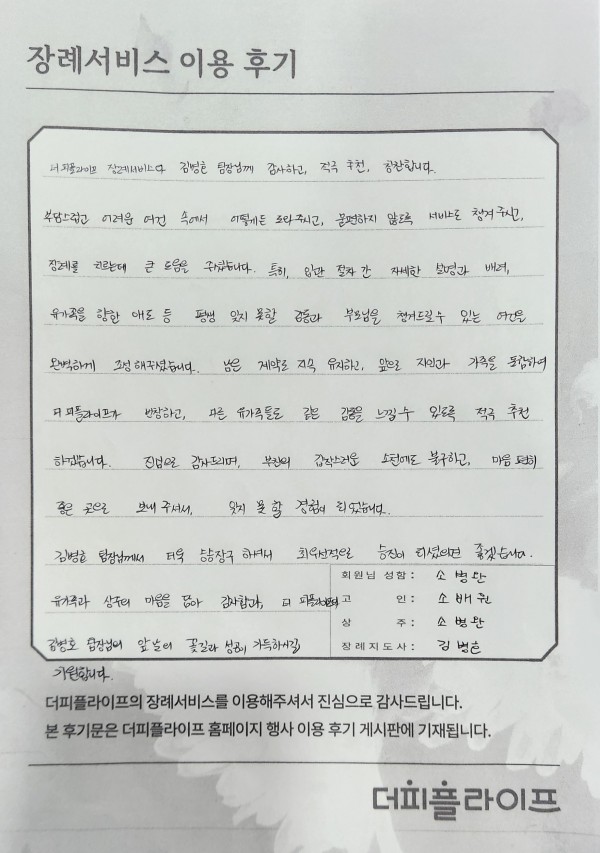 장례서비스 이용 후기
더피플라이프 장례서비스다 김병호 팀장님께 감사하고, 적극 추천, 칭찬합니다.
부담스럽고 어려운 여건 속에서 어떻게든 도와주시고, 불편하지 않도록 서비스로 챙겨 주시고,
장례를 치르는데 큰 도움을 주셨습니다. 특히, 입관 절차 간 자세한 설명과 배려,
유가족을 향한 애도 등 평생 잊지 못할 감동과 부모님을 챙겨드릴 수 있는 여건을
완벽하게 조성해주셨습니다. 남은 계약도 지속 유지하고, 앞으로 지인과 가족을 포함하여
더 피플라이프가 번창하고, 다른 유가족들도 같은 감동을 느낄 수 있도록 적극 추천
하겠습니다. 진심으로 감사드리며, 부친의 갑작스러운 소천에도 불구하고, 마음 편히
좋은 곳으로 보내 주셔서, 잊지 못 할 경험이 되었습니다.
김병호 팀장님께서 더욱 승승장구 하셔서 최우선적으로 승진이 되셨으면 좋겠습니다.
유가족과 상주의 마음을 담아 감사합과, 더 피플라이프의
김병호 팀장님의 앞날의 꽃길과 성공이 가득하시길
기원합니다.
회원님 성함 : 소병환
고 인 : 소배원
상 주 : 소병환
장례지도사 : 김병호
더피플라이프의 장례서비스를 이용해주셔서 진심으로 감사드립니다.
본 후기문은 더피플라이프 홈페이지 행사 이용 후기 게시판에 기재됩니다.
더피플라이프